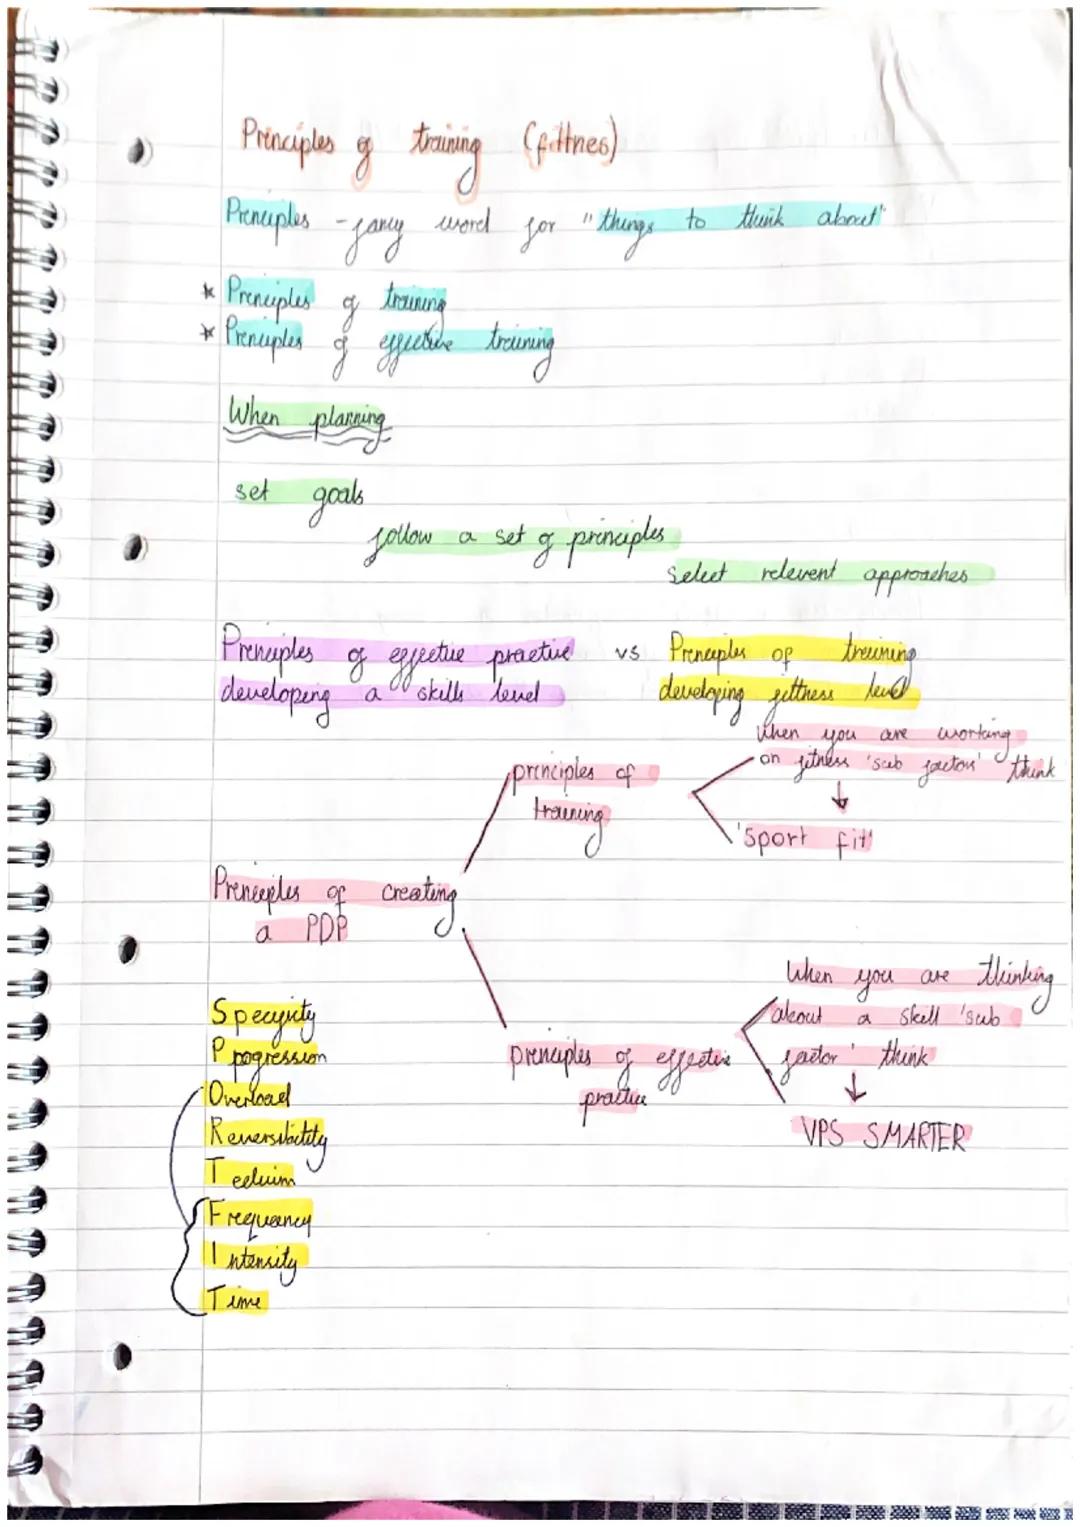 Principles of training (fittnes)
Principles - fancy word for "things to think about"
* Principles of training
* Principles of effective training
When planning
set goals
follow a set of principles
Select relevent approaches
Principles of effective practive vs Principles of training
developing a skills level developing fittness level
When you are working
on fitness 'sub factors' think
principles of
training
'Sport fit'
Principles of creating
a PDP
When you are thinking
about a skill 'sub
factor' think
principles of effective
practive
VPS SMARTER
Specyfity
Progression
Overload
Reversibility
Tedium
Frequency
Intensity
Time